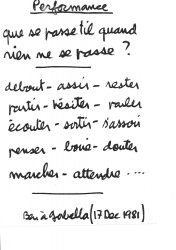 Performance
que se passe til quand
rien ne se passe ?
debout - assis - rester
partir - hésiter - parler
écouter - sortir - s'assoir
penser - boire - douter
marcher - attendre - ....
(17 Dec 1981)